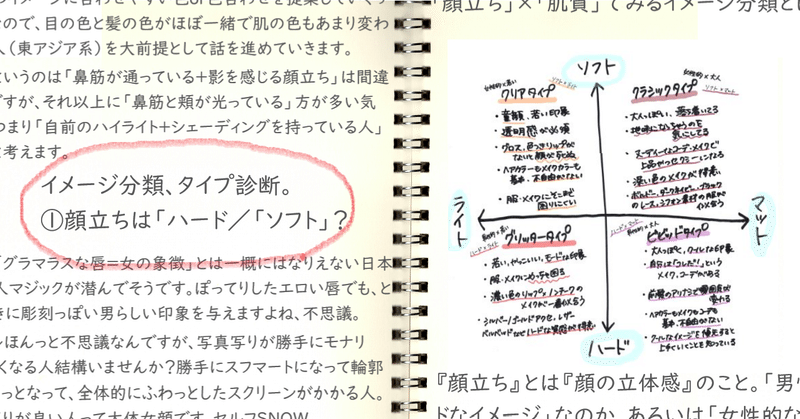 ので、目の色と髪の色がほぼ一緒で肌の色もあまり変わ
(東アジア系)を大前提として話を進めていきます。
いうのは「鼻筋が通っている+影を感じる顔立ち」は間違
ですが、それ以上に「鼻筋と頬が光っている」方が多い気
つまり「自前のハイライト+シェーディングを持っている人」
考えます。
イメージ分類、タイプ診断。
①顔立ちは「ハード/「ソフト」?
「グラマラスな唇=女の象徴」とは一概にはなりえない日本
人マジックが潜んでそうです。ぽってりしたエロい唇でも、と
きに彫刻っぽい男らしい印象を与えますよね、不思議。
ほんっと不思議なんですが、写真写りが勝手にモナリ
くなる人結構いませんか?勝手にスフマートになって輪郭
っとなって、全体的にふわっとしたスクリーンがかかる人。
「顔立ち」×「肌質」でみるイメージ分類と
ソフト
ライト
マット
ハード
クリアタイプ
・童顔、若い印象
・透明感が必須
・グロス、色つきリップが
ないと顔が死ぬ
・ヘアカラーもメイクカラーも
基本、不自由がない
・服・メイクにそこまで
困りにくい
クラシックタイプ
・大人っぽい、落ち着いてる
・地味になっちゃうのを
気にしてる
・ヌーディーなコーデ、メイクで
上品やセクシーになる
・濃い色のメイクが得意
グリッタータイプ
・若い、かっこいい、モードな印象
・服・メイクにめっちゃ困る
・濃い色のリップ×ノンチークの
メイクが一番似合う
・シルバー/ゴールドアクセ、レザー
ビビッドタイプ
・大人っぽく、クールな印象
・自分は「コレだ!」という
メイク、コーデがある
・前髪のアリ/ナシで雰囲気が
変わる
・ヘアカラーもメイクもコーデも
基本、不自由がない
・クールなイメージを
上手くいくことを知っている
『顔立ち』とは『顔の立体感』のこと。「男
ドなイメージ」なのか、あるいは「女性的な